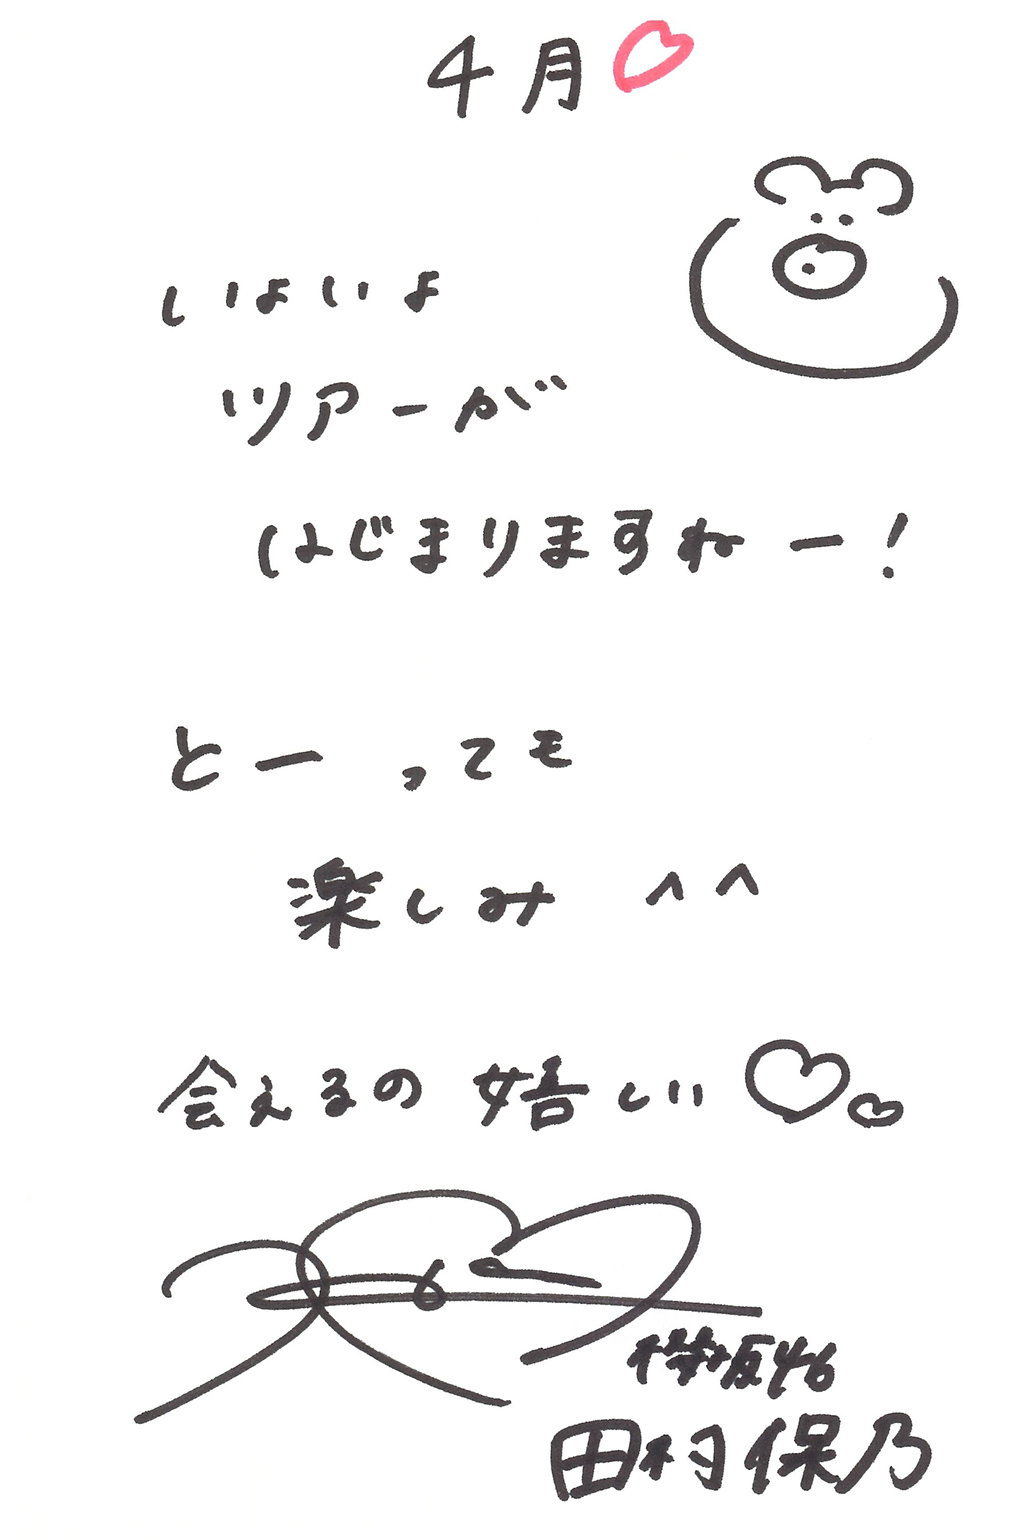 4月♡
いよいよ
ツアーが
はじまりますねー!
とーっても
楽しみ ^^
会えるの嬉しい♡♡
櫻坂46
田村保乃